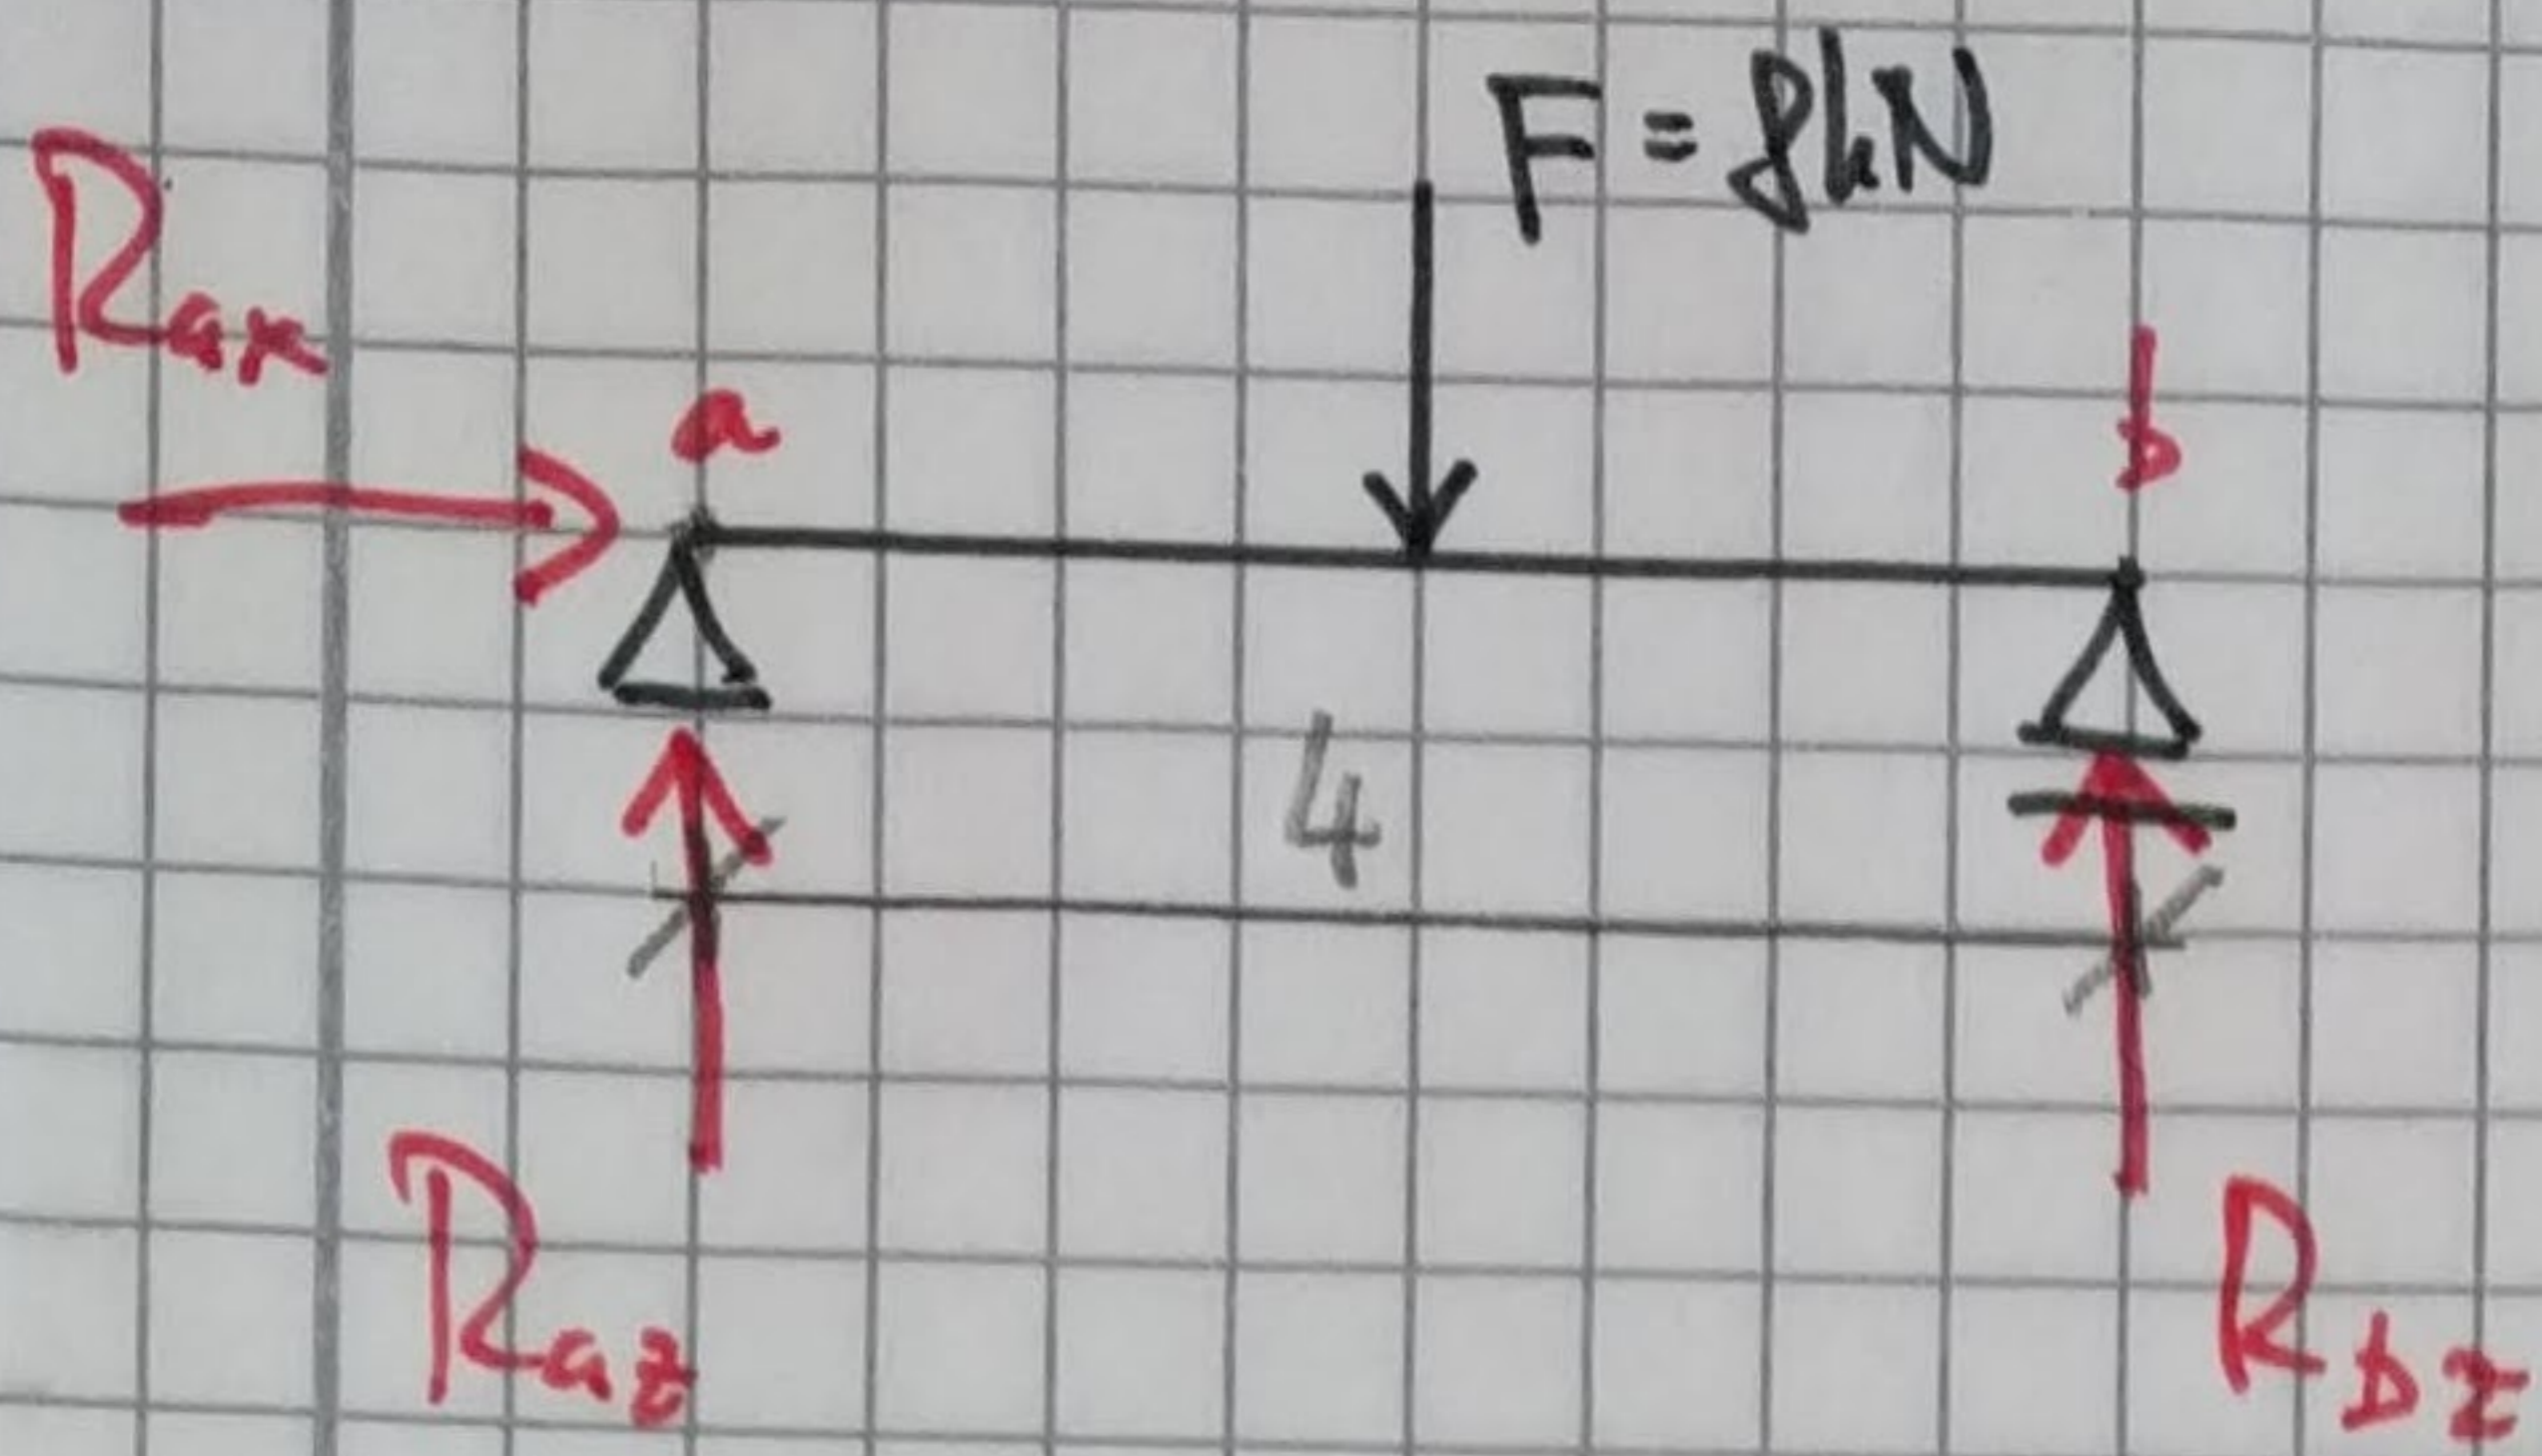 F = 8kN
Rax
a
b
4
Raz
Rbz